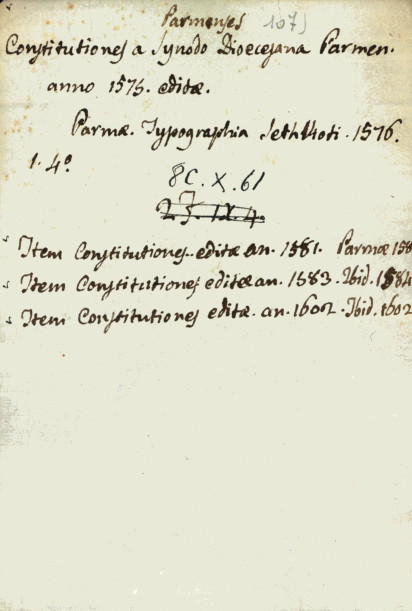 Parmenses 107)
Constitutiones a Synodo Dioecesana Parmen.
anno 1575. editæ.
Parmæ. Typographia Seth Vioti. 1576.
1. 4º
8C. X. 61
27. IX. 4.
Item Constitutiones editæ an. 1581. Parmæ 158
Item Constitutiones editæ an. 1583. Ibid. 1584
Item Constitutiones editæ. an. 1602. Ibid. 1602